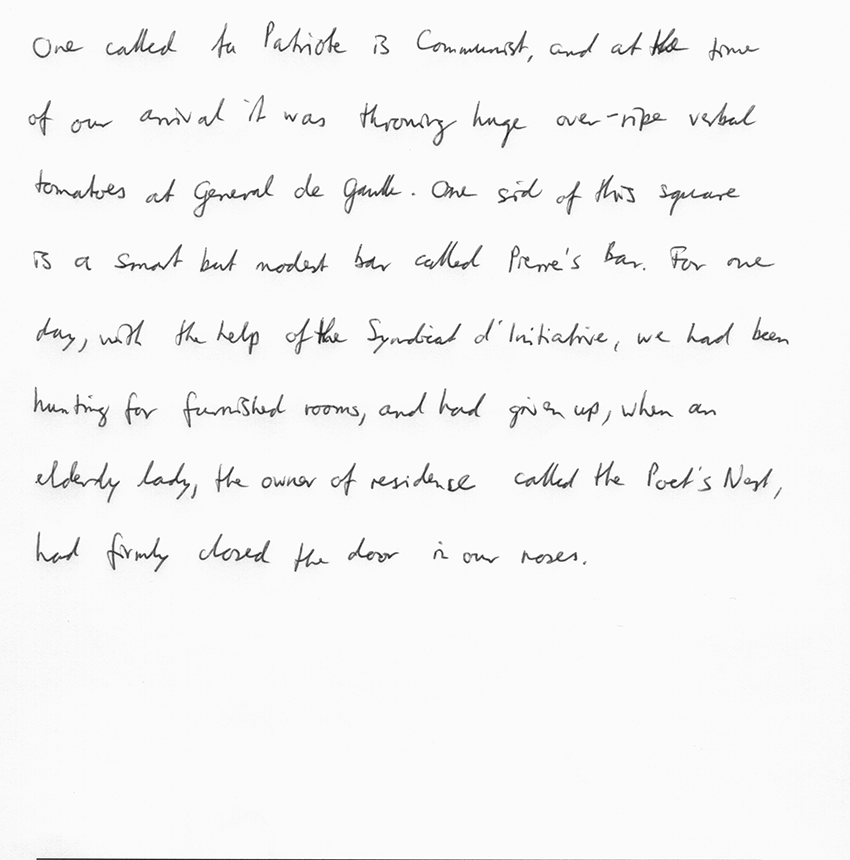 One called la Patriote is Communist, and at the time
of our arrival it was throwing huge over-ripe verbal
tomatoes at General de Gaulle. One sid of this square
is a smart but modest bar called Pierre's Bar. For one
day, with the help of the Syndicat d'Initiative, we had been
hunting for furnished rooms, and had given up, when an
elderly lady, the owner of residence called the Poet's Nest,
had firmly closed the door in our noses.